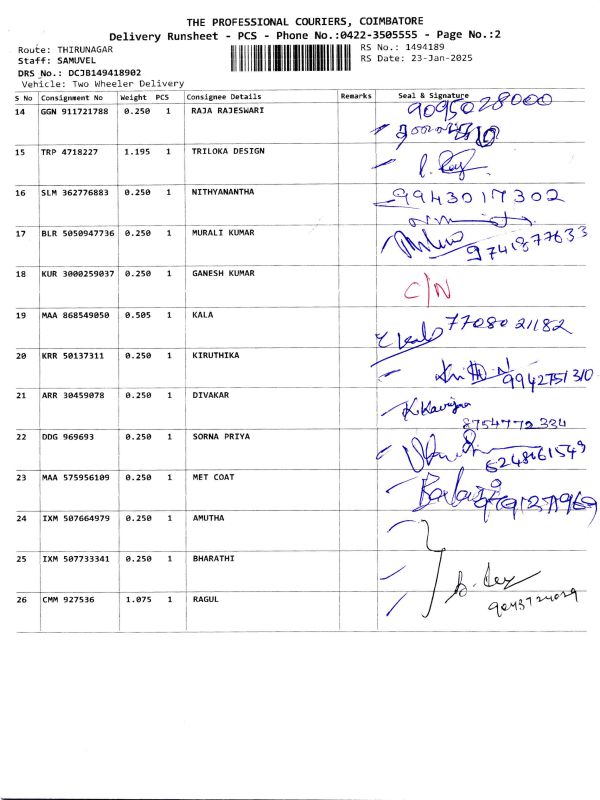 THE PROFESSIONAL COURIERS, COIMBATORE
Delivery Runsheet - PCS - Phone No.:0422-3505555 - Page No.:2
Route: THIRUNAGAR RS No.: 1494189
Staff: SAMUVEL RS Date: 23-Jan-2025
DRS No.: DCJB149418902
Vehicle: Two Wheeler Delivery
S No Consignment No Weight PCS Consignee Details Remarks Seal & Signature
14 GGN 911721788 0.250 1 RAJA RAJESWARI 9095028000
15 TRP 4718227 1.195 1 TRILOKA DESIGN
16 SLM 362776883 0.250 1 NITHYANANTHA 9943017302
17 BLR 5050947736 0.250 1 MURALI KUMAR 9741877633
18 KUR 3000259037 0.250 1 GANESH KUMAR C/N
19 MAA 868549050 0.505 1 KALA 7708021182
20 KRR 50137311 0.250 1 KIRUTHIKA 9942751310
21 ARR 30459078 0.250 1 DIVAKAR
8754772334
22 DDG 969693 0.250 1 SORNA PRIYA
6248161549
23 MAA 575956109 0.250 1 MET COAT
24 IXM 507664979 0.250 1 AMUTHA
25 IXM 507733341 0.250 1 BHARATHI
26 CMM 927536 1.075 1 RAGUL